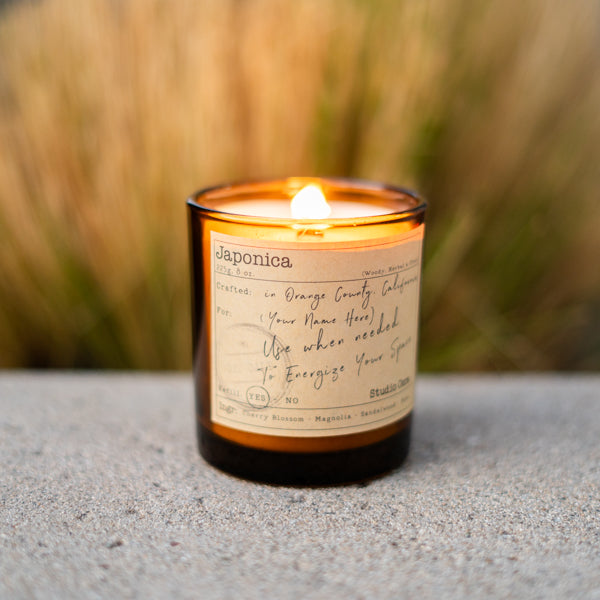 Japonica
225g, 8 oz. (Woody, Herbal &
Crafted: in Orange County, California
For: (Your Name Here)
Use when needed
To Energize Your Space
Refill: YES NO Studio
Ingr: Cherry Blossom - Magnolia - Sandalwood